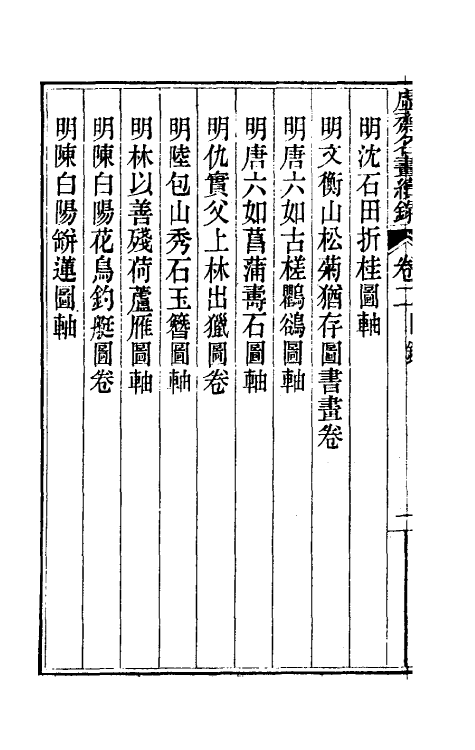 虛齋名畫續錄 卷二目錄 一
明沈石田折桂圖軸
明文衡山松菊猶存圖書畫卷
明唐六如古槎鸜鵒圖軸
明唐六如菖蒲壽石圖軸
明仇實父上林出獵圖卷
明陸包山秀石玉簪圖軸
明林以善殘荷蘆雁圖軸
明陳白陽花鳥釣艇圖卷
明陳白陽缾蓮圖軸